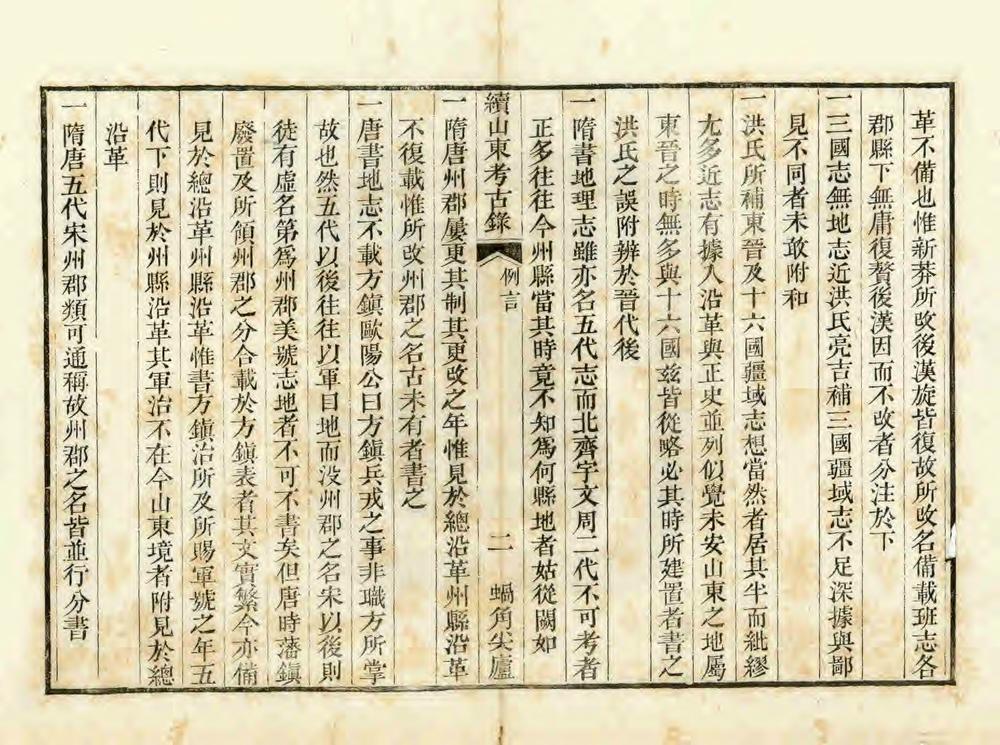 革不備也惟新莽所改後漢旋皆復故所改名備載班志各
郡縣下無庸復贅後漢因而不改者分注於下
一三國志無地志近洪氏亮吉補三國疆域志不足深據與鄙
見不同者未敢附和
一洪氏所補東晉及十六國疆域志想當然者居其半而紕繆
尤多近志有據入沿革與正史並列似覺未安山東之地屬
東晉之時無多與十六國玆皆從略必其時所建置者書之
洪氏之誤附辨於晉代後
一隋書地理志雖亦名五代志而北齊宇文周二代不可考者
正多往往今州縣當其時竟不知爲何縣地者姑從闕如
續山東考古錄
例言
二
蝸角尖廬
一隋唐州郡屢更其制其更改之年惟見於總沿革州縣沿革
不復載惟所改州郡之名古未有者書之
一唐書地志不載方鎮歐陽公曰方鎮兵戎之事非職方所掌
故也然五代以後往往以軍目地而没州郡之名宋以後則
徒有虛名第爲州郡美號志地者不可不書矣但唐時藩鎮
廢置及所領州郡之分合載於方鎮表者其文實繁今亦備
見於總沿革州縣沿革惟書方鎮治所及所賜軍號之年五
代下則見於州縣沿革其軍治不在今山東境者附見於總
沿革
一隋唐五代宋州郡類可通稱故州郡之名皆並行分書